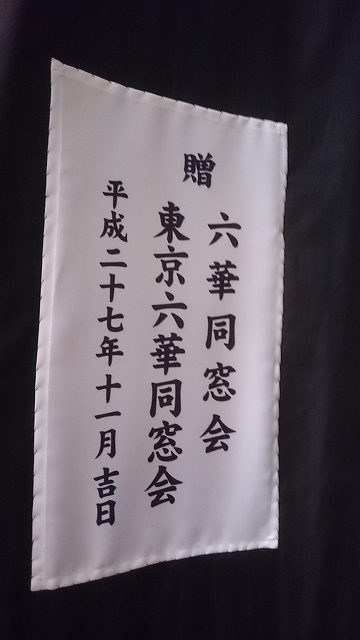 贈
六華同窓会
東京六華同窓会
平成二十七年十一月吉日